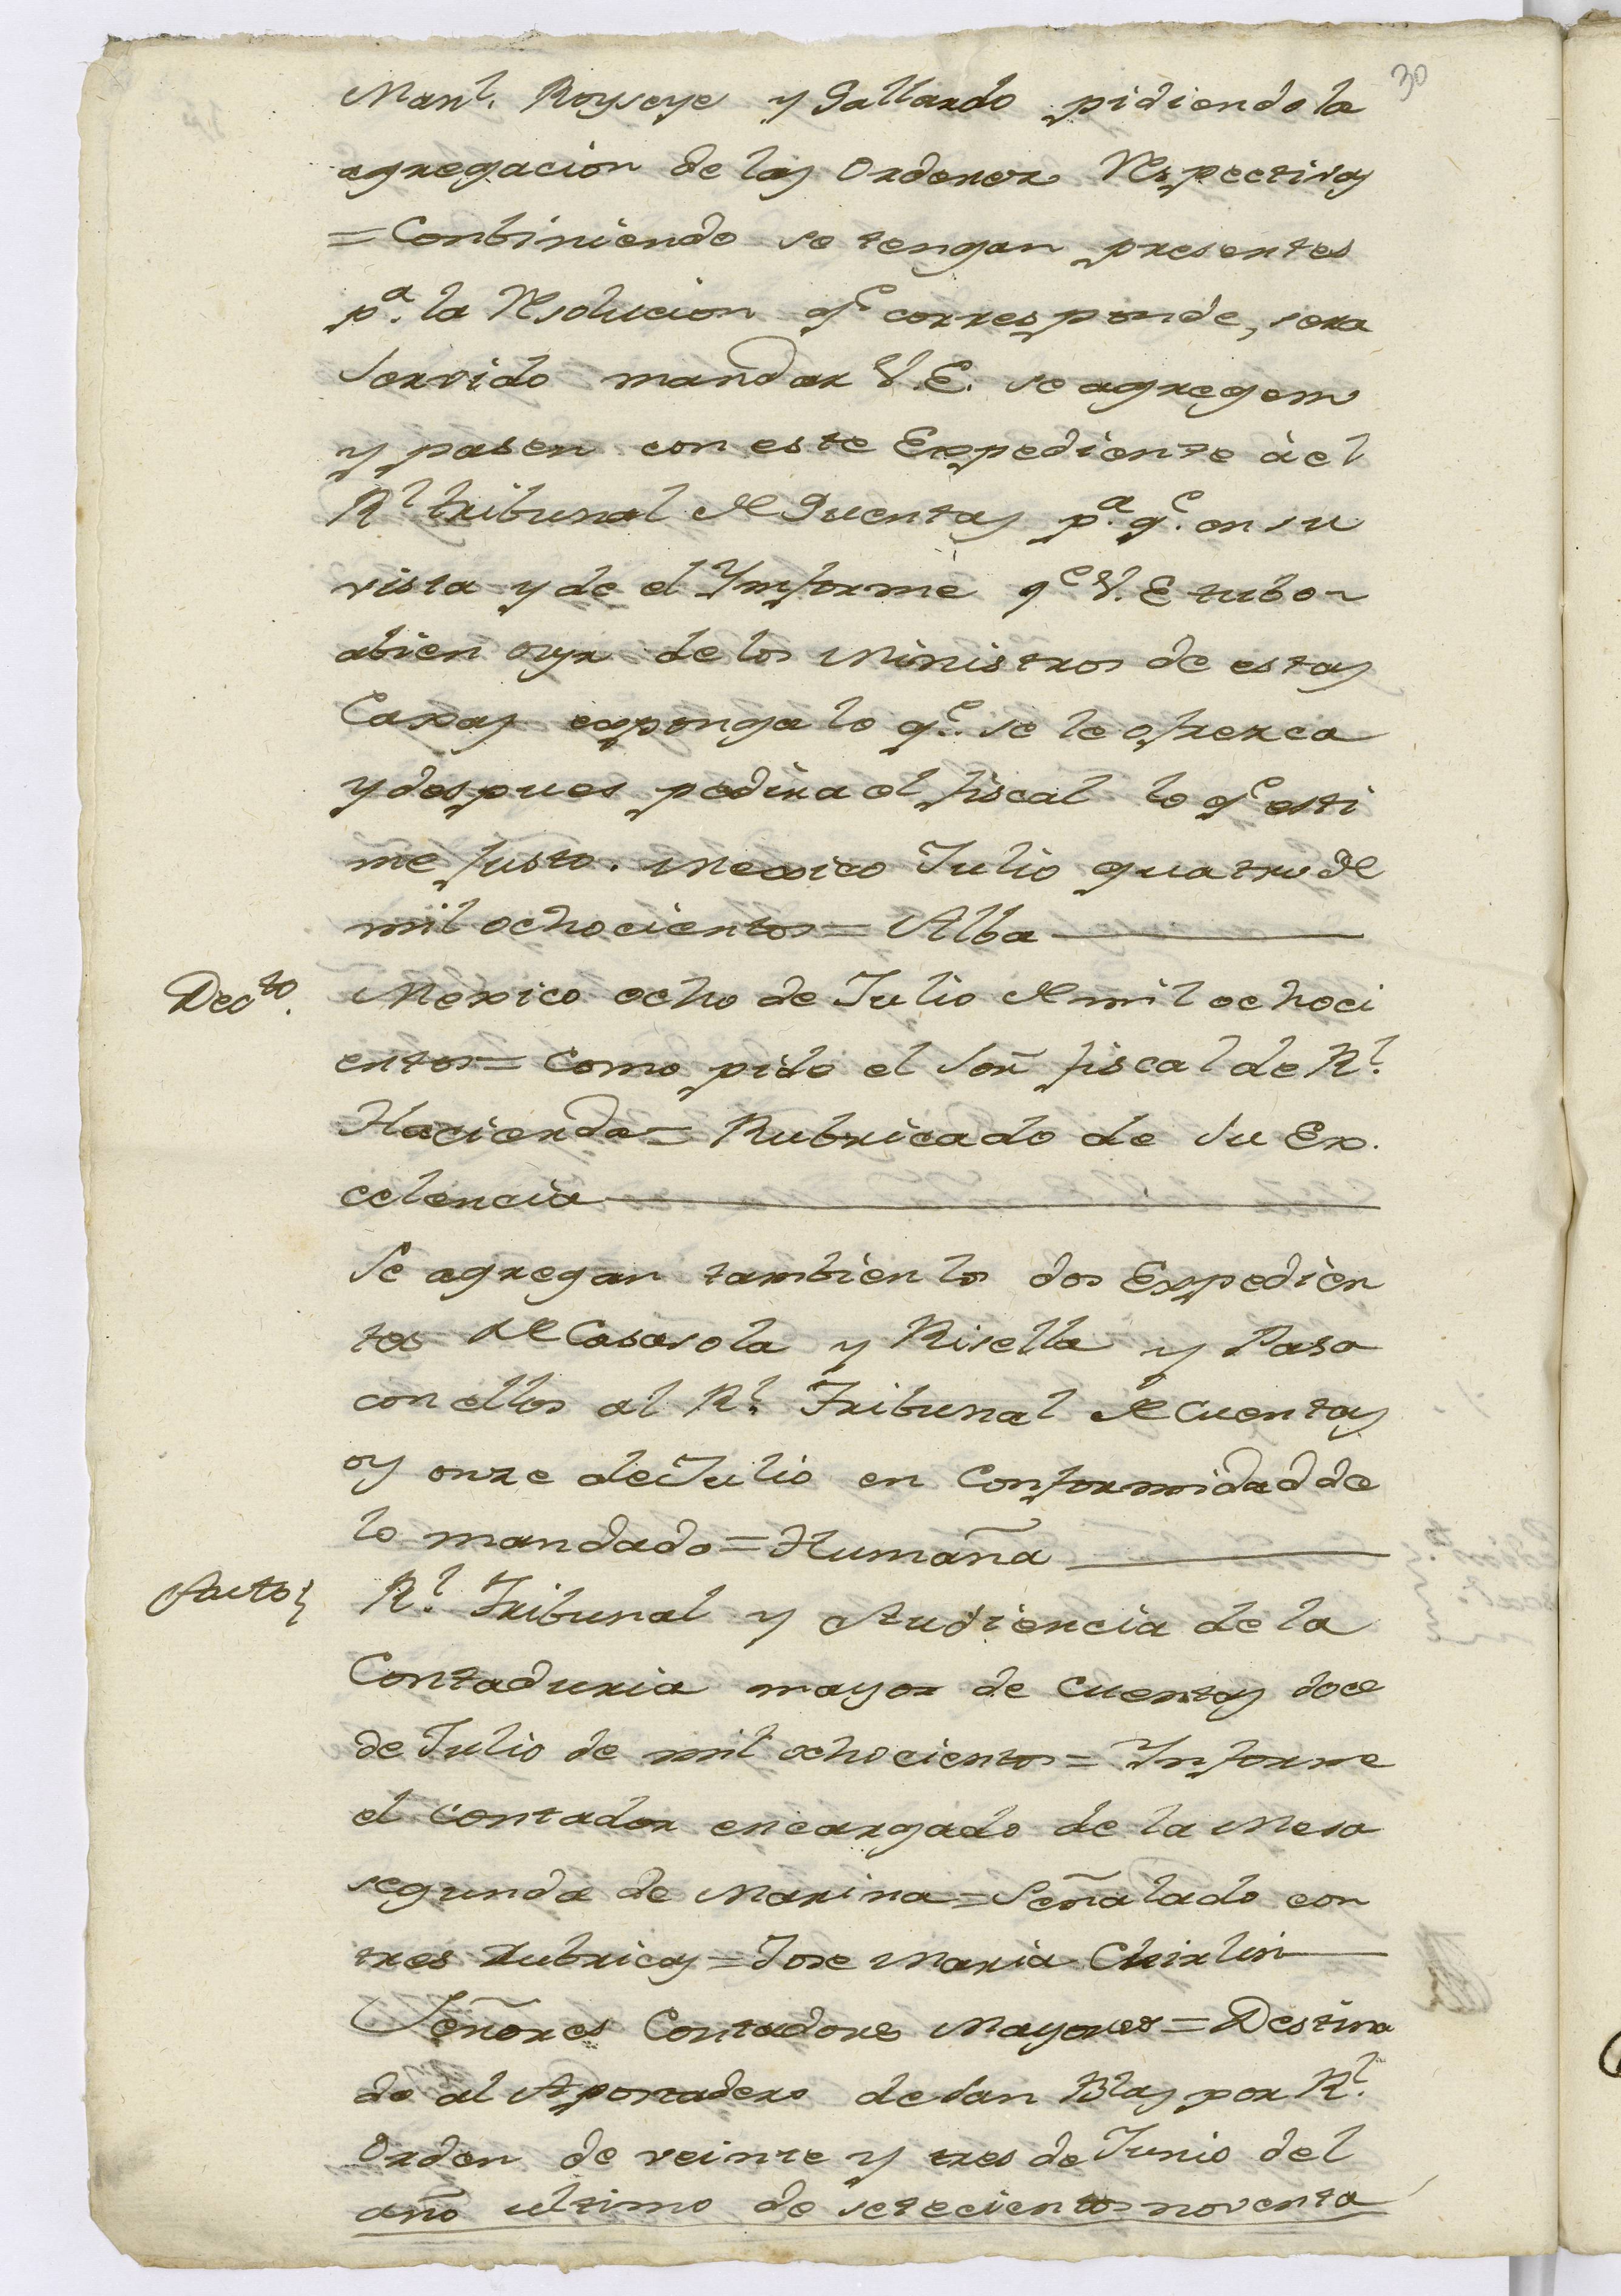 30
Man.l Royseye y Gallardo pidiendo la
agregacion de las Ordenes Respectivas
=Conbiniendo se tengan presentes
p.a la Resolucion q.e corresponde, sera
servido mandar V.E. se agregem
y pasen con este Expediente à el
R.l tribunal de Quentas p.a q.e en su
vista y de el Ynforme q.e V.E tubo
abien oyr de los Ministros de estas
Caxas exponga lo q.e se le ofrezca
y despues pedira el fiscal lo q.e esti
me justo. Mexico Julio quatro de
mil ochocientos= Alba
Dec.to Mexico ocho de Julio de mil ochoci
entos= Como pide el Señ fiscal de R.l
Hacienda= Rubricado de Su Ex.
celencia
Se agregan tambien los dos Expedien
tes de Casasola y Risella y Paso
con ellos al R.l Tribunal de Cuentas
oy onze de Julio en Conformidad de
lo mandado= Humaña
Auto R.l Tribunal y Audiencia de la
Contaduria mayor de Cuentas doce
de Julio de mil ochocientos= Ynforme
el Contador encargado de la Mesa
segunda de Marina= Señalado con
tres Rubricas= Jose Maria Chirlin
Señores Contadores Mayores= Destina
do al Apostadero de San Blas por R.l
Orden de veinte y tres de Junio del
año ultimo de setecientos noventa